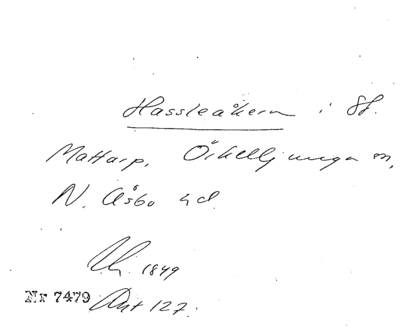 Hassleåkern i St.
Mattarp, Örkelljunga sn,
N. Åsbo hd.
1849
Nr 7479 Akt 127.